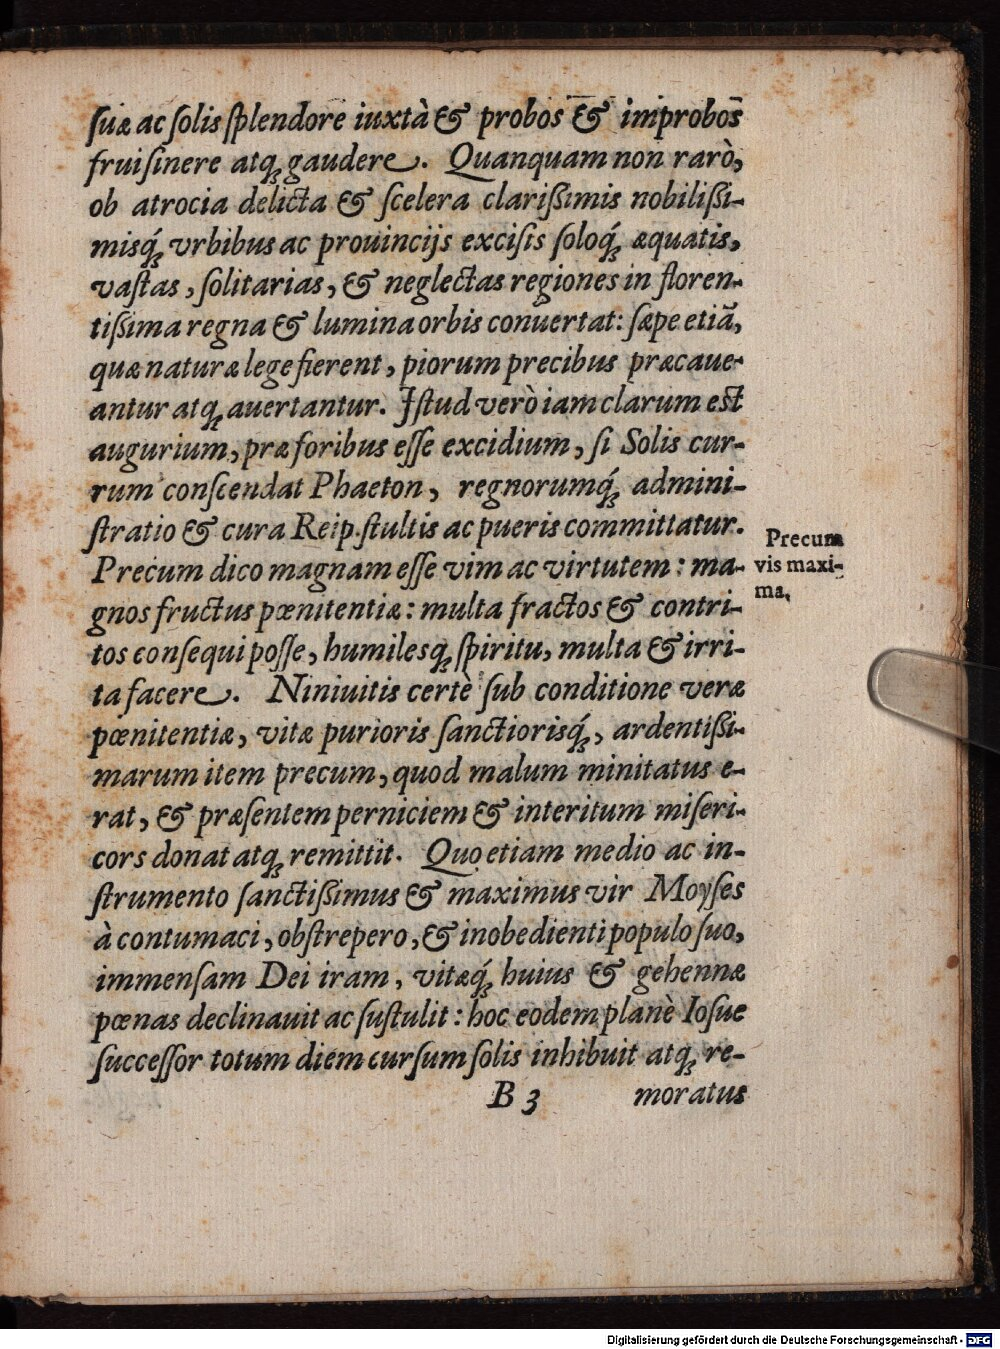 ſuæ ac ſolis ſplendore iuxtà & probos & improbos
fruiſinere atq́; gaudere. Quanquam non rarò,
ob atrocia delicta & ſcelera clarißimis nobilißi-
misq́; vrbibus ac prouincijs exciſis ſoloq́; æquatis,
vaſtas, ſolitarias, & neglectas regiones in floren-
tißima regna & lumina orbis conuertat: ſæpe etiã,
quæ naturæ lege fierent, piorum precibus præcaue-
antur atq; auertantur. Iſtud verò iam clarum est
augurium, præ foribus eſſe excidium, ſi Solis cur-
rum conſcendat Phaeton, regnorumq́; admini-
ſtratio & cura Reip. ſtultis ac pueris committatur.
Precum dico magnam eſſe vim ac virtutem: ma-
gnos fructus pœnitentiæ: multa fractos & contri-
tos conſequi poſſe, humilesq́; ſpiritu, multa & irri-
ta facere. Niniuitis certè ſub conditione veræ
pœnitentiæ, vitæ purioris ſanctiorisq́;, ardentißi-
marum item precum, quod malum minitatus e-
rat, & præſentem perniciem & interitum miſeri-
cors donat atq; remittit. Quo etiam medio ac in-
ſtrumento ſanctißimus & maximus vir Moyſes
à contumaci, obſtrepero, & inobedienti populo ſuo,
immenſam Dei iram, vitæq́; huius & gehennæ
pœnas declinauit ac ſuſtulit: hoc eodem planè Ioſue
ſucceſſor totum diem curſum ſolis inhibuit atq; re-
B 3 moratus
Precum
vis maxi-
ma.
Digitalisierung gefördert durch die Deutsche Forschungsgemeinschaft - DFG